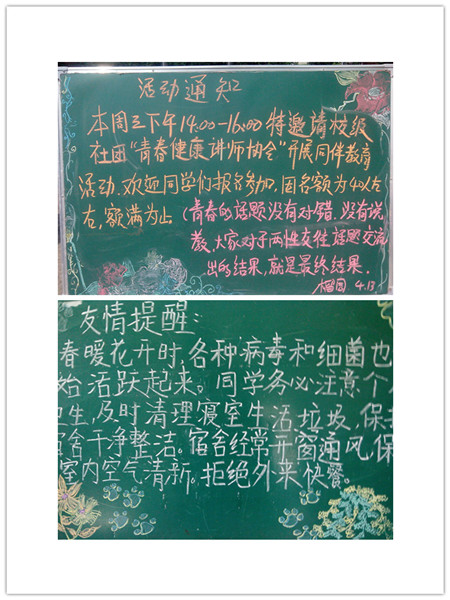 活动通知
本周三下午14:00-16:00特邀请校级
社团"青春健康讲师协会"开展同伴教育
活动,欢迎同学们报名参加,因名额为40人左
右,额满为止
(青春的话题没有对错,没有说
教,大家对于两性交往话题交流
出的结果,就是最终结果.
榴园 4.13
友情提醒:
春暖花开时,各种病毒和细菌也
始活跃起来。同学务必注意个
卫生,及时清理寝室生活垃圾,保
宿舍干净整洁。宿舍经常开窗通风,保
室内空气清新。拒绝外来快餐。